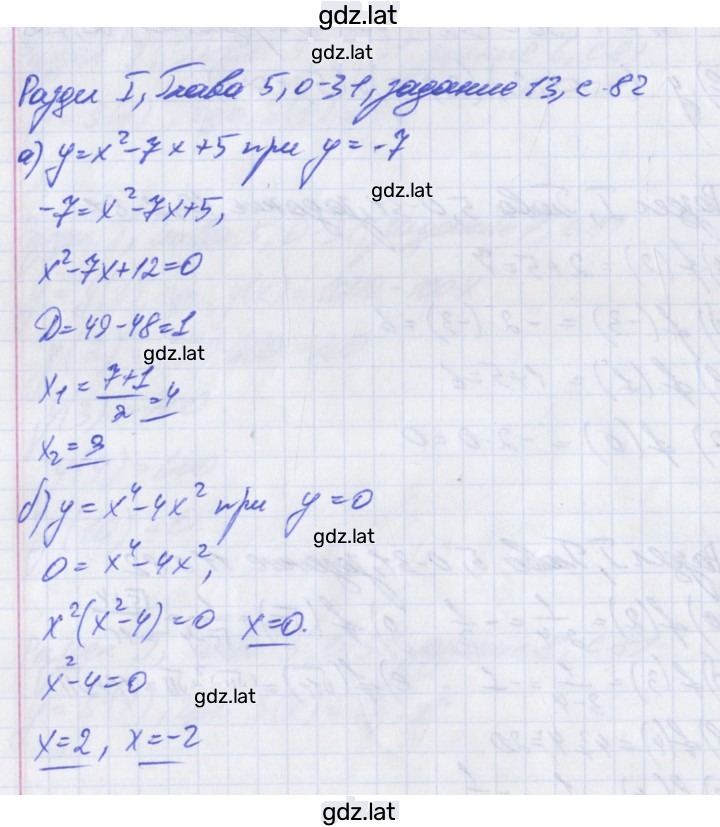 gdz.lat
gdz.lat
Раздел I, Глава 5, О-31, задание 13, с. 82
а) y=x²-7x+5 при y=-7
gdz.lat
-7=x²-7x+5,
x²-7x+12=0
D=49-48=1
gdz.lat
x₁ = (7+1)/2 = 4
x₂ = 3
б) y=x⁴-4x² при y=0
gdz.lat
0=x⁴-4x²,
x²(x²-4)=0 x=0.
x²-4=0
gdz.lat
x=2, x=-2
gdz.lat